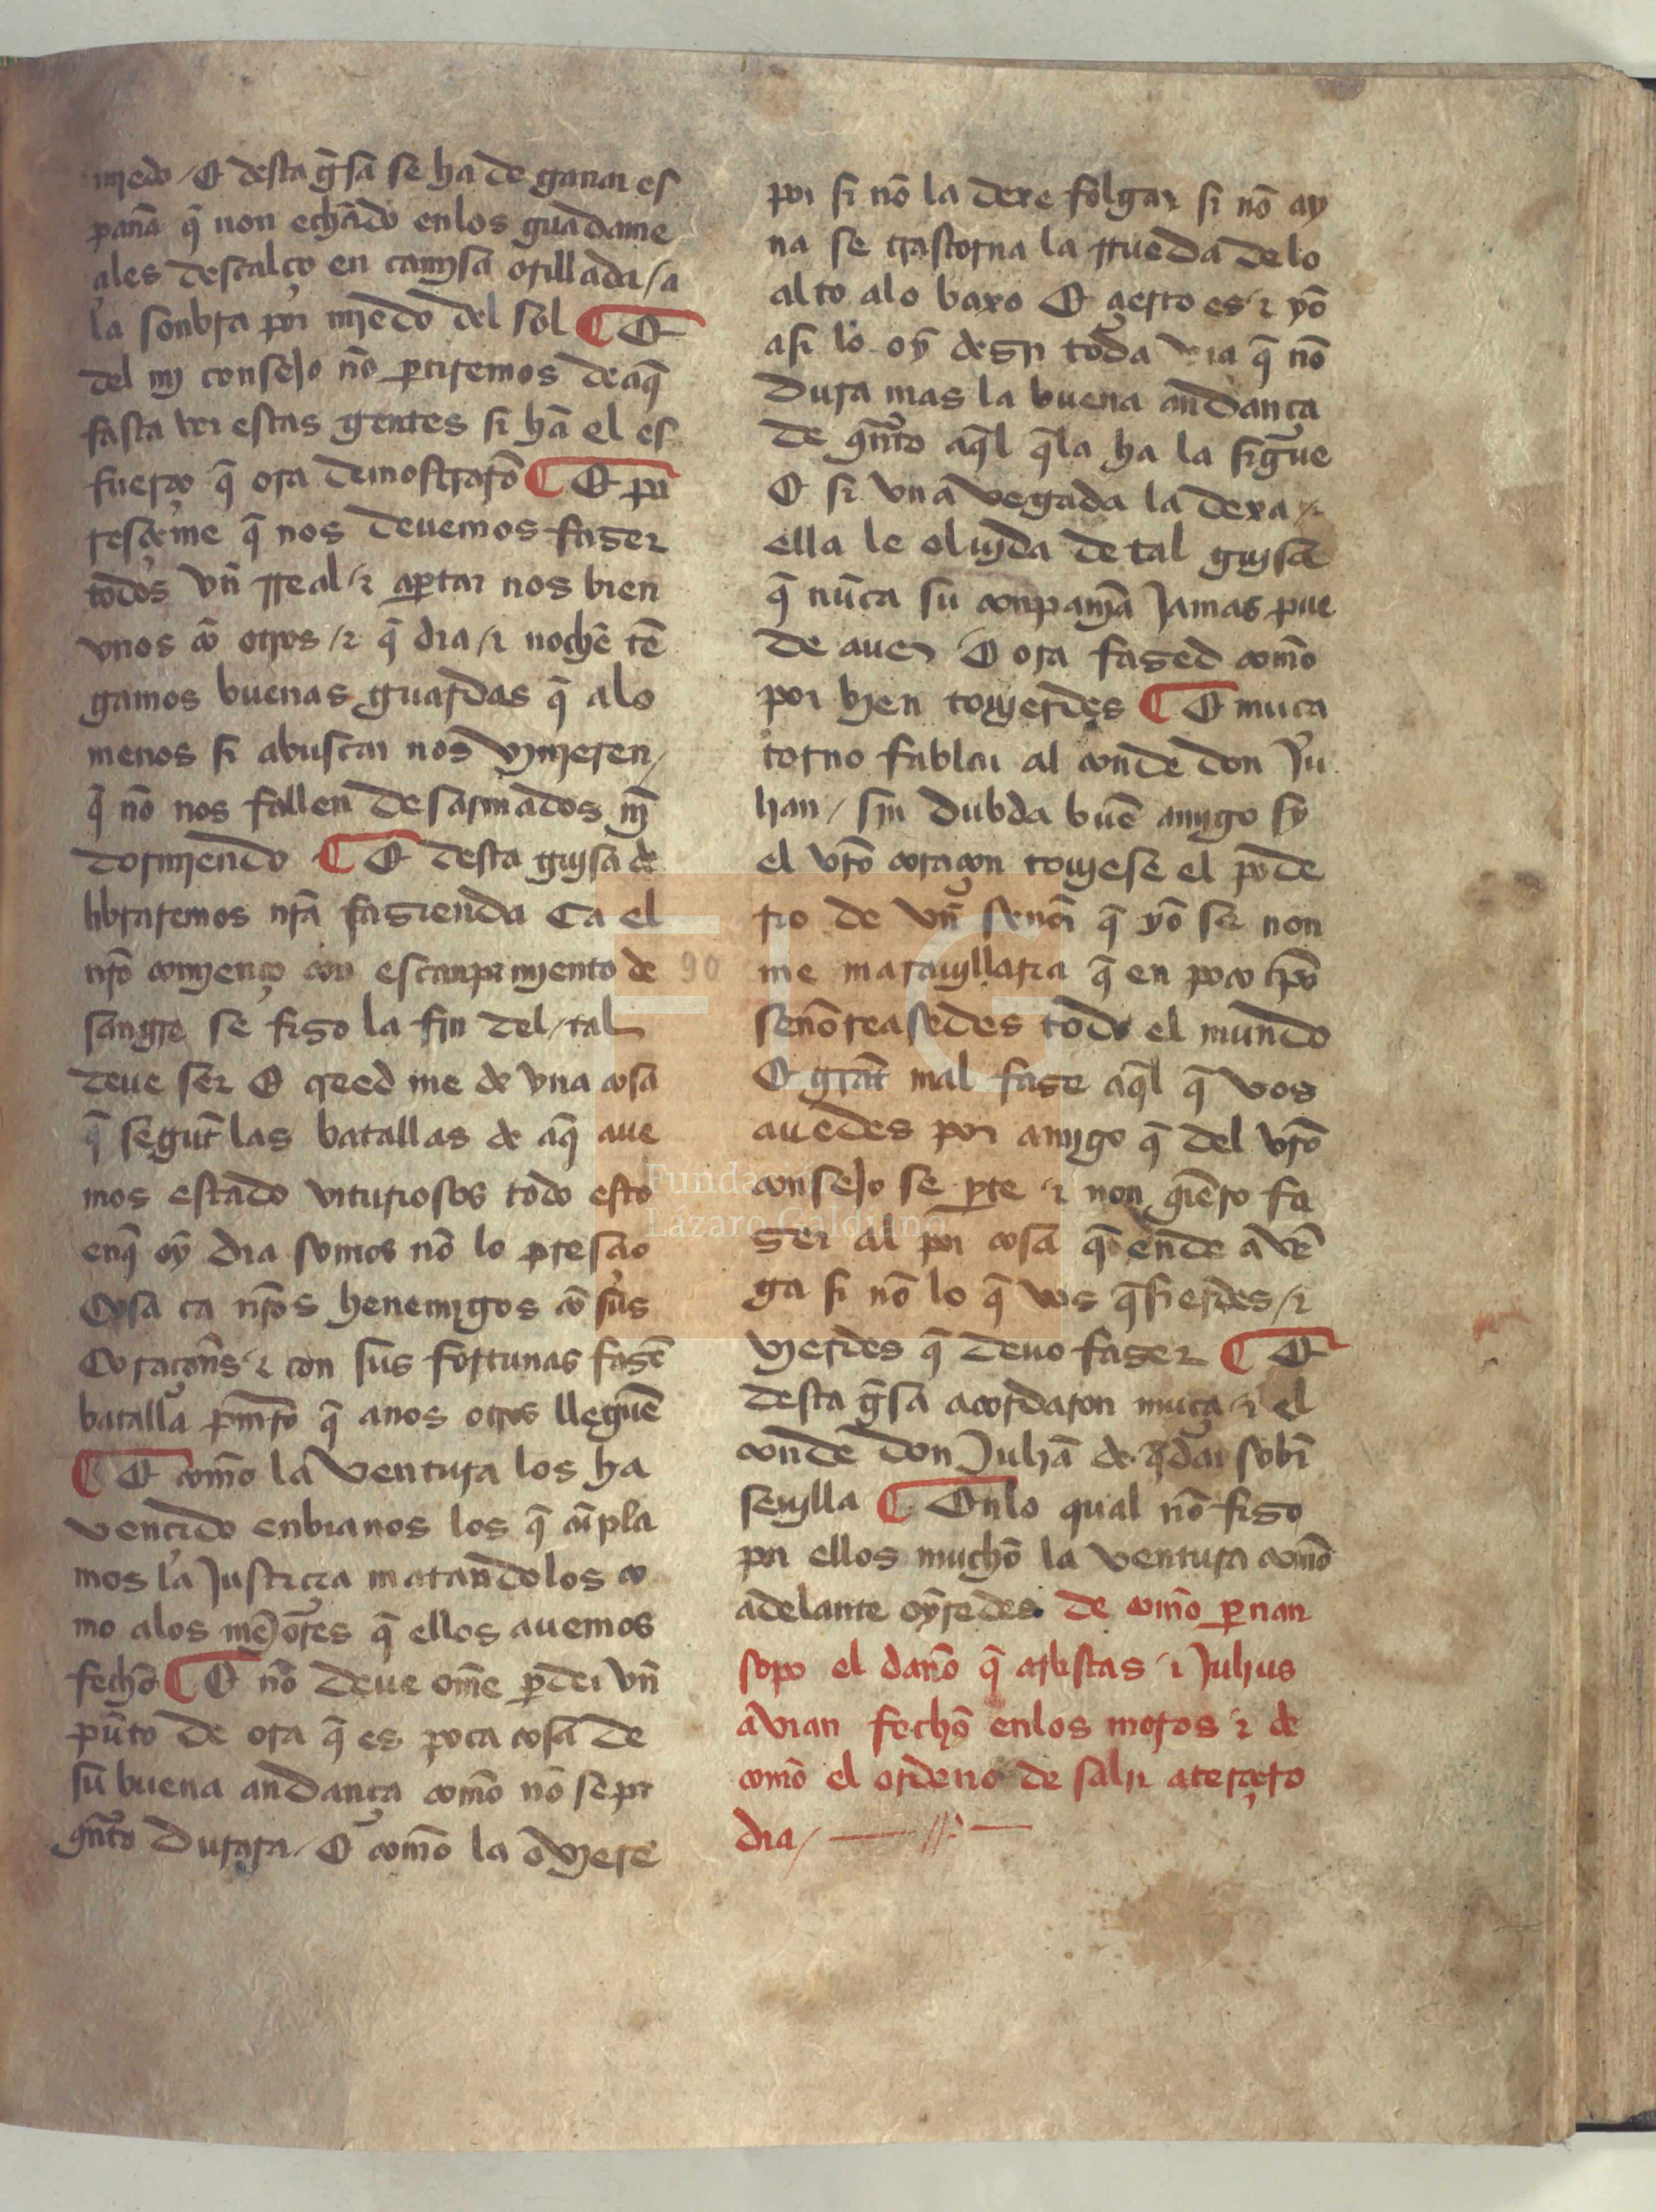 miedo / E desta g̃sa se ha de ganar es
pana q̃ non echãdo en los guadame
ales descalço en camysa orillada / a
la sonbra por miedo del sol ¶ E
del my consejo nõ ꝑtiremos de aq̃
fasta ver estas gentes si hã el es
fuerço q̃ ora demostrarõ ¶ E pa
resçeme q̃ nos deuemos faser
todos vñ rreal / ⁊ aꝑtar nos bien
vnos cõ otros / ⁊ q̃ dia / ⁊ noche tẽ
gamos buenas guardas q̃ alo
menos si abuscar nos vynieren /
q̃ nõ nos fallen desarmados nj̃
dormiendo ¶ E desta guysa de
libraremos nr̃a fasienda Ca el
nr̃o comienço con escanpamiento de
sangre se fiso la fin del / tal
deue ser E creed me de vna cosa
q̃ segut̃ las batallas de aq̃ aue
mos estado vituriosos todo esto
enq̃ oy dia somos nõ lo presçio
Cosa ca nr̃os henemigos cõ sus
Coraçoñs ⁊ con sus fortunas fasẽ
batalla pm̃ro q̃ anos otros lleguẽ
¶ E com̃o la ventura los ha
vencido enbianos los q̃ cũpla
mos la justicia matandolos co
mo alos mẽjores q̃ ellos auemos
fecho ¶ E nõ deue om̃e ꝑder vñ
pũto de ora q̃ es poca cosa de
su buena andança com̃o nõ sepa
qñto durara / E com̃o la oviere
por si nõ la dexe folgar si nõ ay
na se trastorna la rrueda de lo
alto alo baxo E çierto es ⁊ yo
asi lo oy desir toda via q̃ nõ
dura mas la buena andança
de qñto aq̃l q̃la ha la sigue
E si vna vegada la dexa /
ella le oluyda de tal guysa
q̃ nũca su conpanja jamas pue
de auer E ora fased com̃o
por bien touierdes ¶ E muça
torno fablar al conde don Ju
han / sin dubda buẽ amygo sy
el vr̃o coraçon touiese el pode
rio de vñ señor q̃ yo se non
me marauyllaria q̃ en poco tp̃o
señoreasedes todo el mundo
E grat̃ mal fase aq̃l q̃ vos
auedes por amygo q̃ del vr̃o
consejo se ꝑte ⁊ non qiẽro fa
ser al por cosa q̃ ende avẽ
ga si nõ lo q̃ vos q̃sierdes / ⁊
vierdes q̃ deuo faser ¶ E
desta g̃sa acordaron muça ⁊ el
conde don Juhã de q̃dar sobr̃
seuylla ¶ Enlo qual nõ fiso
por ellos mucho la ventura com̃o
adelante oyredes. de com̃o ꝑnan
sopo el daño q̃ aristas ⁊ Julius
avian fecho enlos moros ⁊ de
como el ordeno de salir aterçero
dia /
90
FLG
Fundación
Lázaro Galdiano